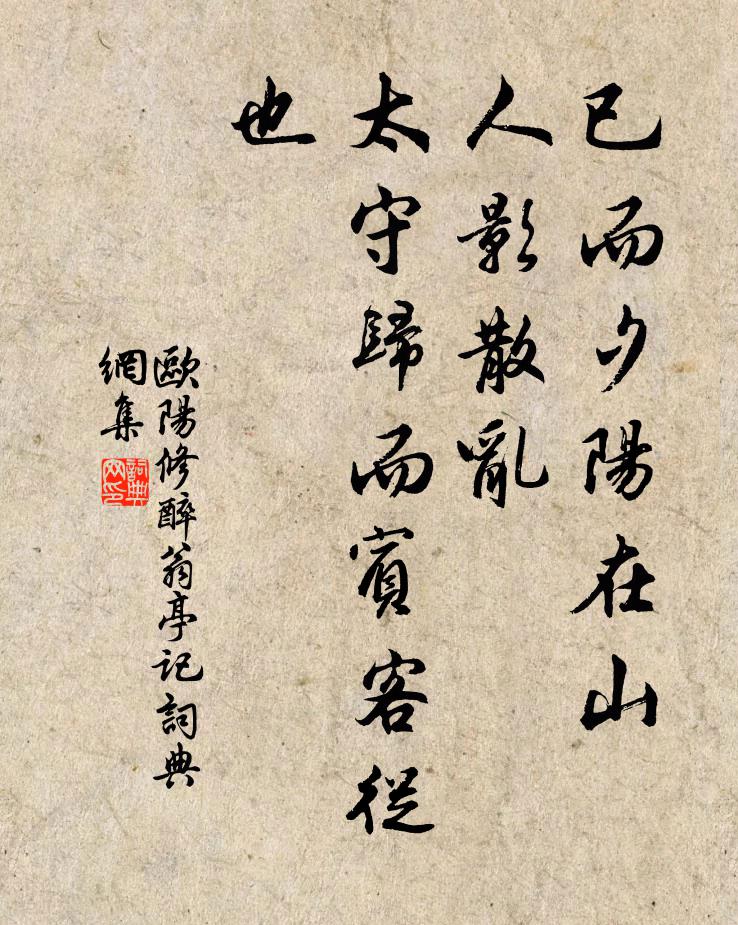 已而夕陽在山
人影散亂
太守歸而賓客從
也
歐陽修醉翁亭記詞典
網集
詞典
网印